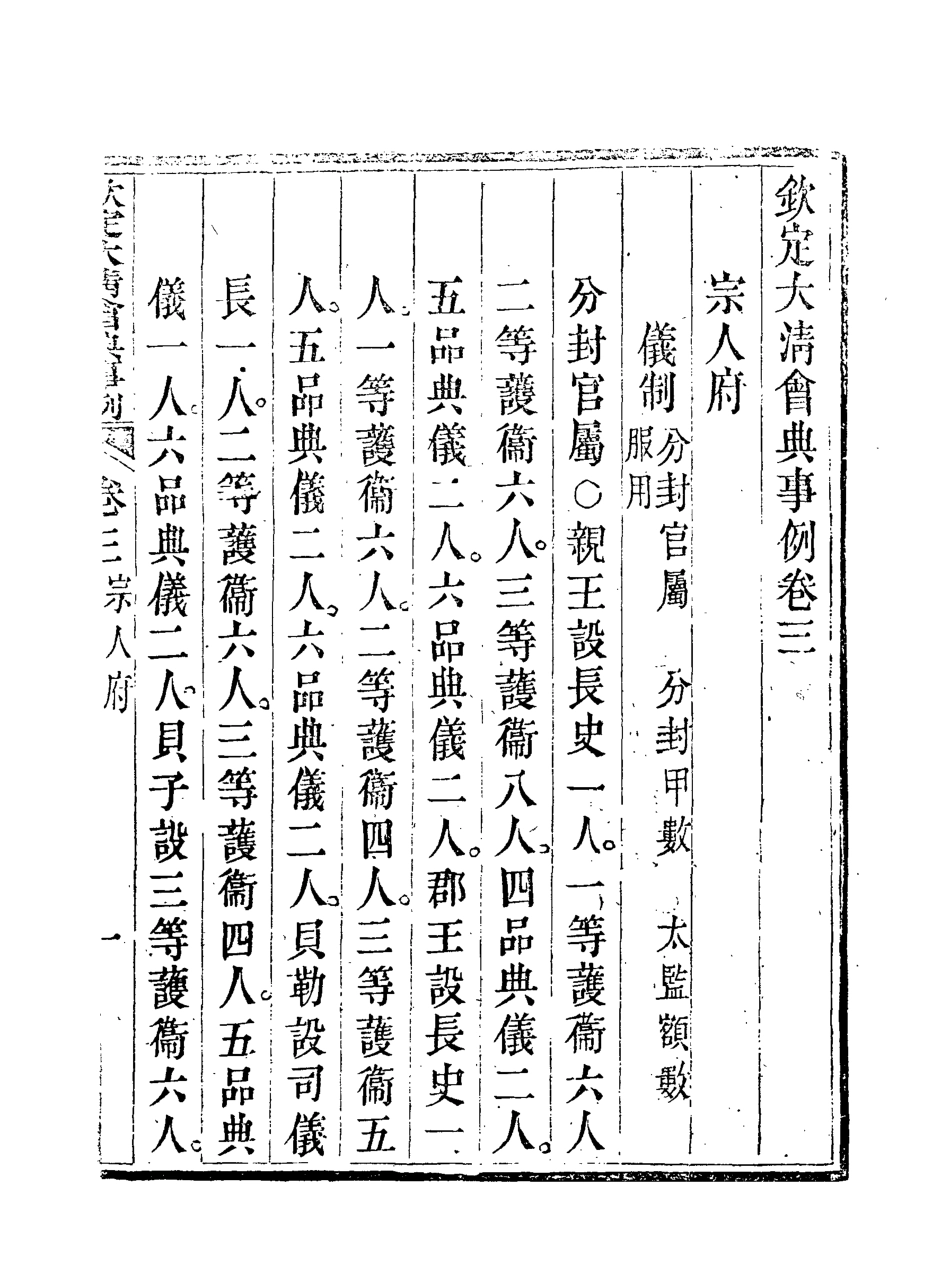 欽定大清會典事例卷三
宗人府
儀制分封官屬　分封甲數　太監額數
服用
分封官屬○親王設長史一人。一等護衞六人
二等護衞六人。三等護衞八人。四品典儀二人。
五品典儀二人。六品典儀二人。郡王設長史一
人。一等護衞六人。二等護衞四人。三等護衞五
人。五品典儀二人。六品典儀二人。貝勒設司儀
長一人。二等護衞六人。三等護衞四人。五品典
儀一人。六品典儀二人。貝子設三等護衞六人。
欽定大清會典事例　卷三宗人府　一